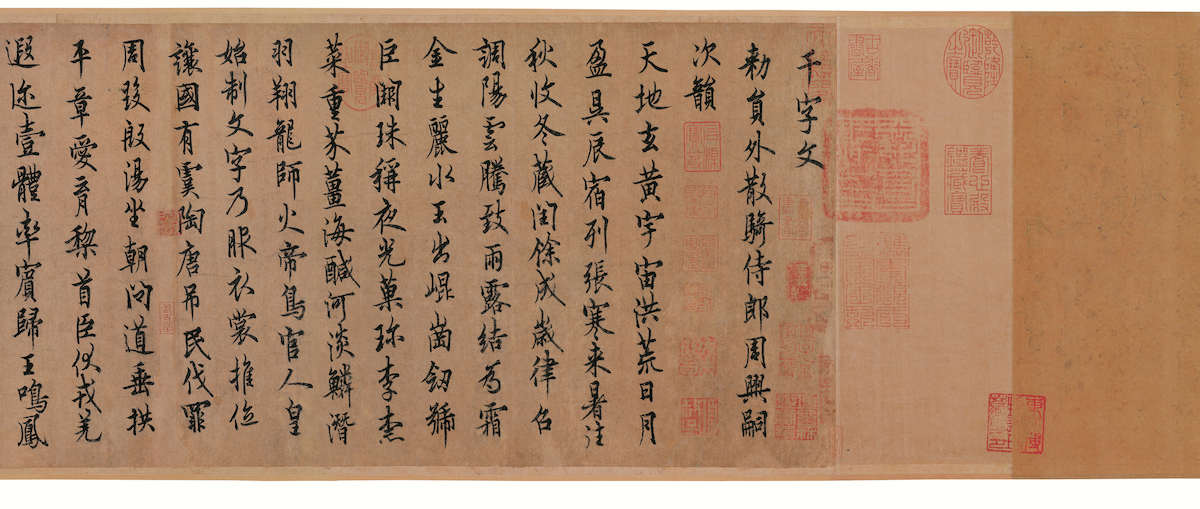 千字文
勑員外散騎侍郎周興嗣
次韻
天地玄黃宇宙洪荒日月
盈昃辰宿列張寒来暑往
秋收冬藏閏餘成歲律召
調陽雲騰致雨露結為霜
金生麗水玉出崐崗劒號
巨闕珠稱夜光菓珎李柰
菜重芥薑海醎河淡鱗潛
羽翔龍師火帝鳥官人皇
始制文字乃服衣裳推位
讓國有虞陶唐吊民伐罪
周發殷湯坐朝問道垂拱
平章愛育黎首臣伏戎羌
遐迩壹體率賓歸王鳴鳳